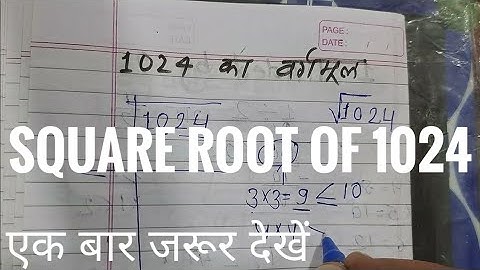 PAGE:
DATE:
1024 का वर्गमूल
1024
√1024
SQUARE ROOT OF 1024
3×3=9 ≤ 10
एक बार जरूर देखें